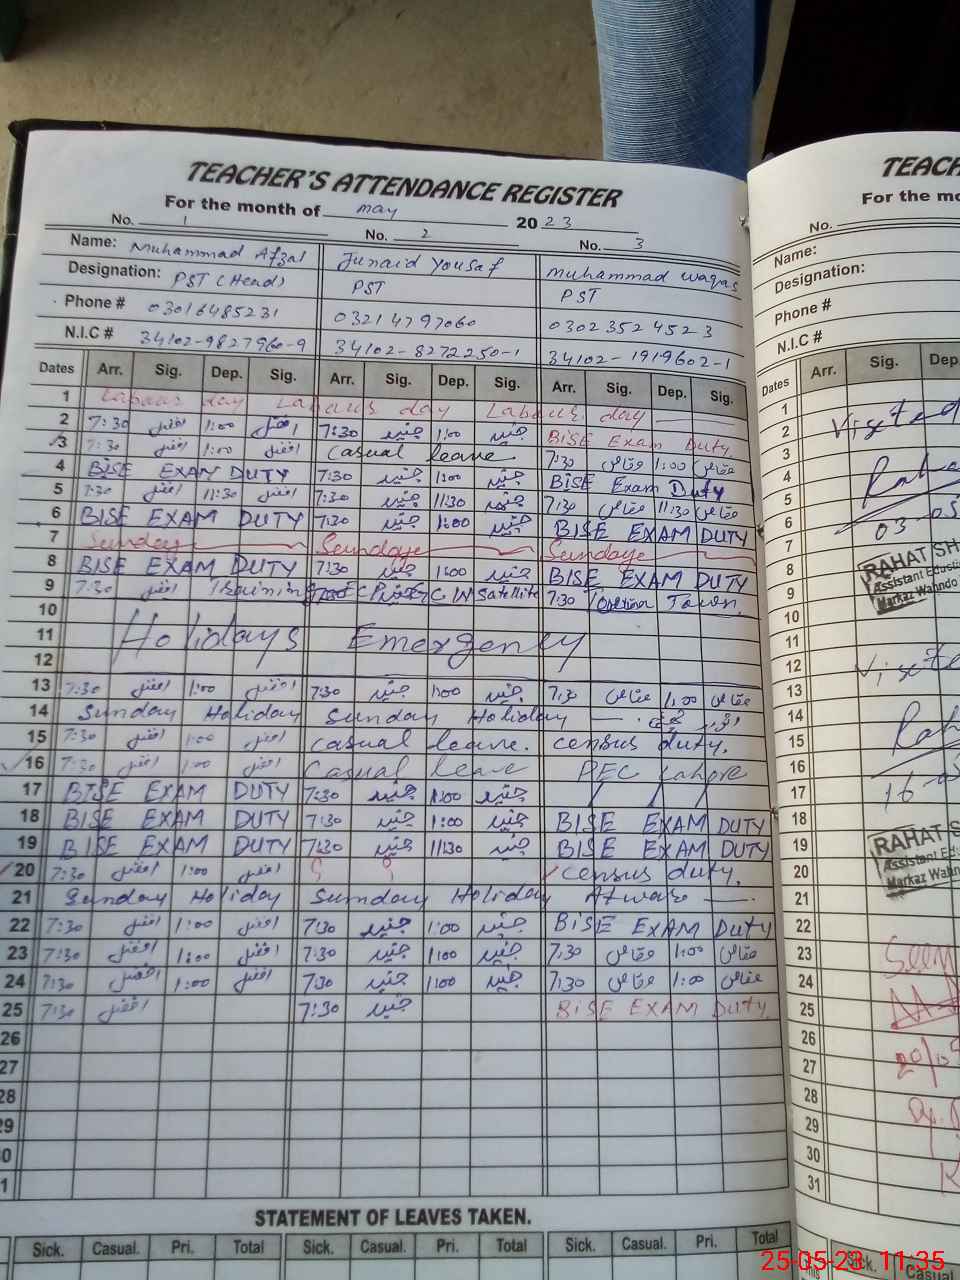 TEACHER'S ATTENDANCE REGISTER
For the month of may 2023
No. 1 No. 2 No. 3
Name: Muhammad Afzal Junaid Yousaf muhammad waqas
Designation: PST (Head) PST PST
Phone # 03016485231 03214797060 03023524523
N.I.C # 34102-9827960-9 34102-8272250-1 34102-1919602-1
Dates Arr. Sig. Dep. Sig. Arr. Sig. Dep. Sig. Arr. Sig. Dep. Sig.
1 Labour day Labours day Labours day
2 7:30 افضل 1:00 افضل 7:30 جنید 1:00 جنید BISE Exam Duty
3 7:30 افضل 1:00 افضل Casual leave 7:30 وقاص 1:00 وقاص
4 BISE EXAM DUTY 7:30 جنید 1:00 جنید BISE Exam Duty
5 7:30 افضل 11:30 افضل 7:30 جنید 11:30 جنید 7:30 وقاص 11:30 وقاص
6 BISE EXAM DUTY 7:30 جنید 1:00 جنید BISE EXAM DUTY
7 Sunday Sundaye Sundaye
8 BISE EXAM DUTY 7:30 جنید 1:00 جنید BISE EXAM DUTY
9 7:30 افضل Training Satellite 7:30 Town
10
11 Holidays Emergency
12
13 7:30 افضل 1:00 افضل 7:30 جنید 1:00 جنید 7:30 وقاص 1:00 وقاص
14 Sunday Holiday Sunday Holiday
15 7:30 افضل 1:00 افضل casual leave. census duty.
16 7:30 افضل 1:00 افضل Casual leave PEC Lahore
17 BISE EXAM DUTY 7:30 جنید 1:00 جنید
18 BISE EXAM DUTY 7:30 جنید 1:00 جنید BISE EXAM DUTY
19 BISE EXAM DUTY 7:30 جنید 11:30 جنید BISE EXAM DUTY
20 7:30 افضل 1:00 افضل census duty.
21 Sunday Holiday Sunday Holiday Atwar
22 7:30 افضل 1:00 افضل 7:30 جنید 1:00 جنید BISE EXAM Duty
23 7:30 افضل 1:00 افضل 7:30 جنید 1:00 جنید 7:30 وقاص 1:00 وقاص
24 7:30 افضل 1:00 افضل 7:30 جنید 1:00 جنید 7:30 وقاص 1:00 وقاص
25 7:30 افضل 7:30 جنید BISE EXAM Duty
26
27
28
29
STATEMENT OF LEAVES TAKEN.
Sick. Casual. Pri. Total Sick. Casual. Pri. Total Sick. Casual. Pri. Total
For the
No.
Name:
Designation:
Phone #
N.I.C #
Dates Arr. Sig.
1
2 Visited
3
4
5
6 03-05
7
8 RAHAT
9 Assistant
10 Markaz Wahndo
11
12
13
14
15
16
17 16-05
18
19 RAHAT
20 Assistant
21 Markaz
22
23 Seen
24
25
26
27
28
29
30
31
Sick. Casual
25-05-23 11:35